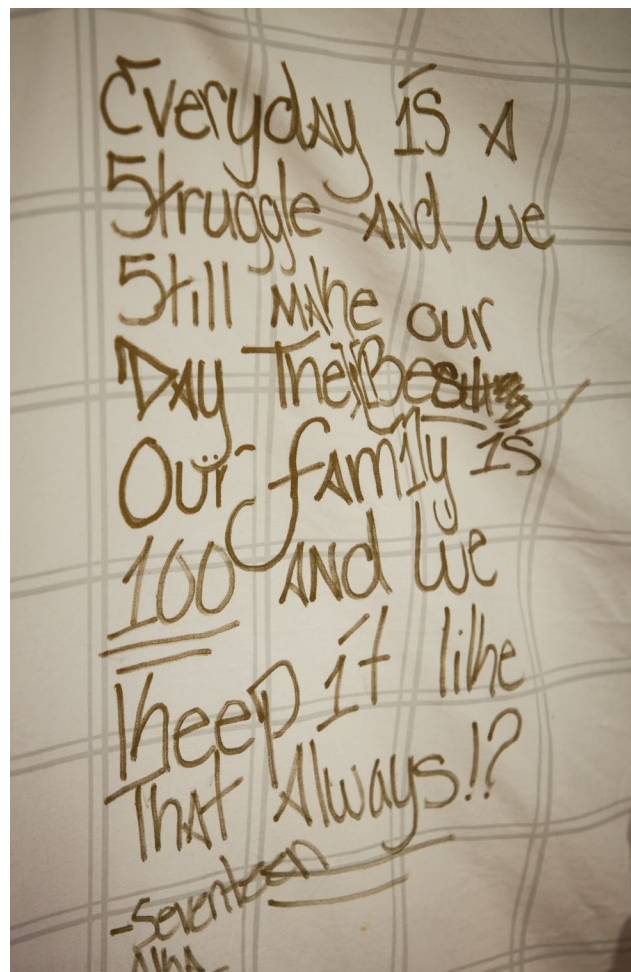 Everyday is A
Struggle And we
Still make our
Day The Best
Our family is
100 And We
Keep it like
That Always!?
-Seventeen